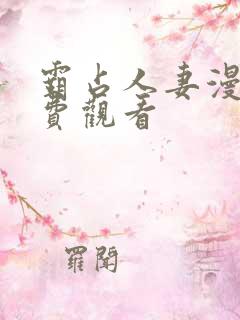 霸占人妻漫
費觀看
羅閱